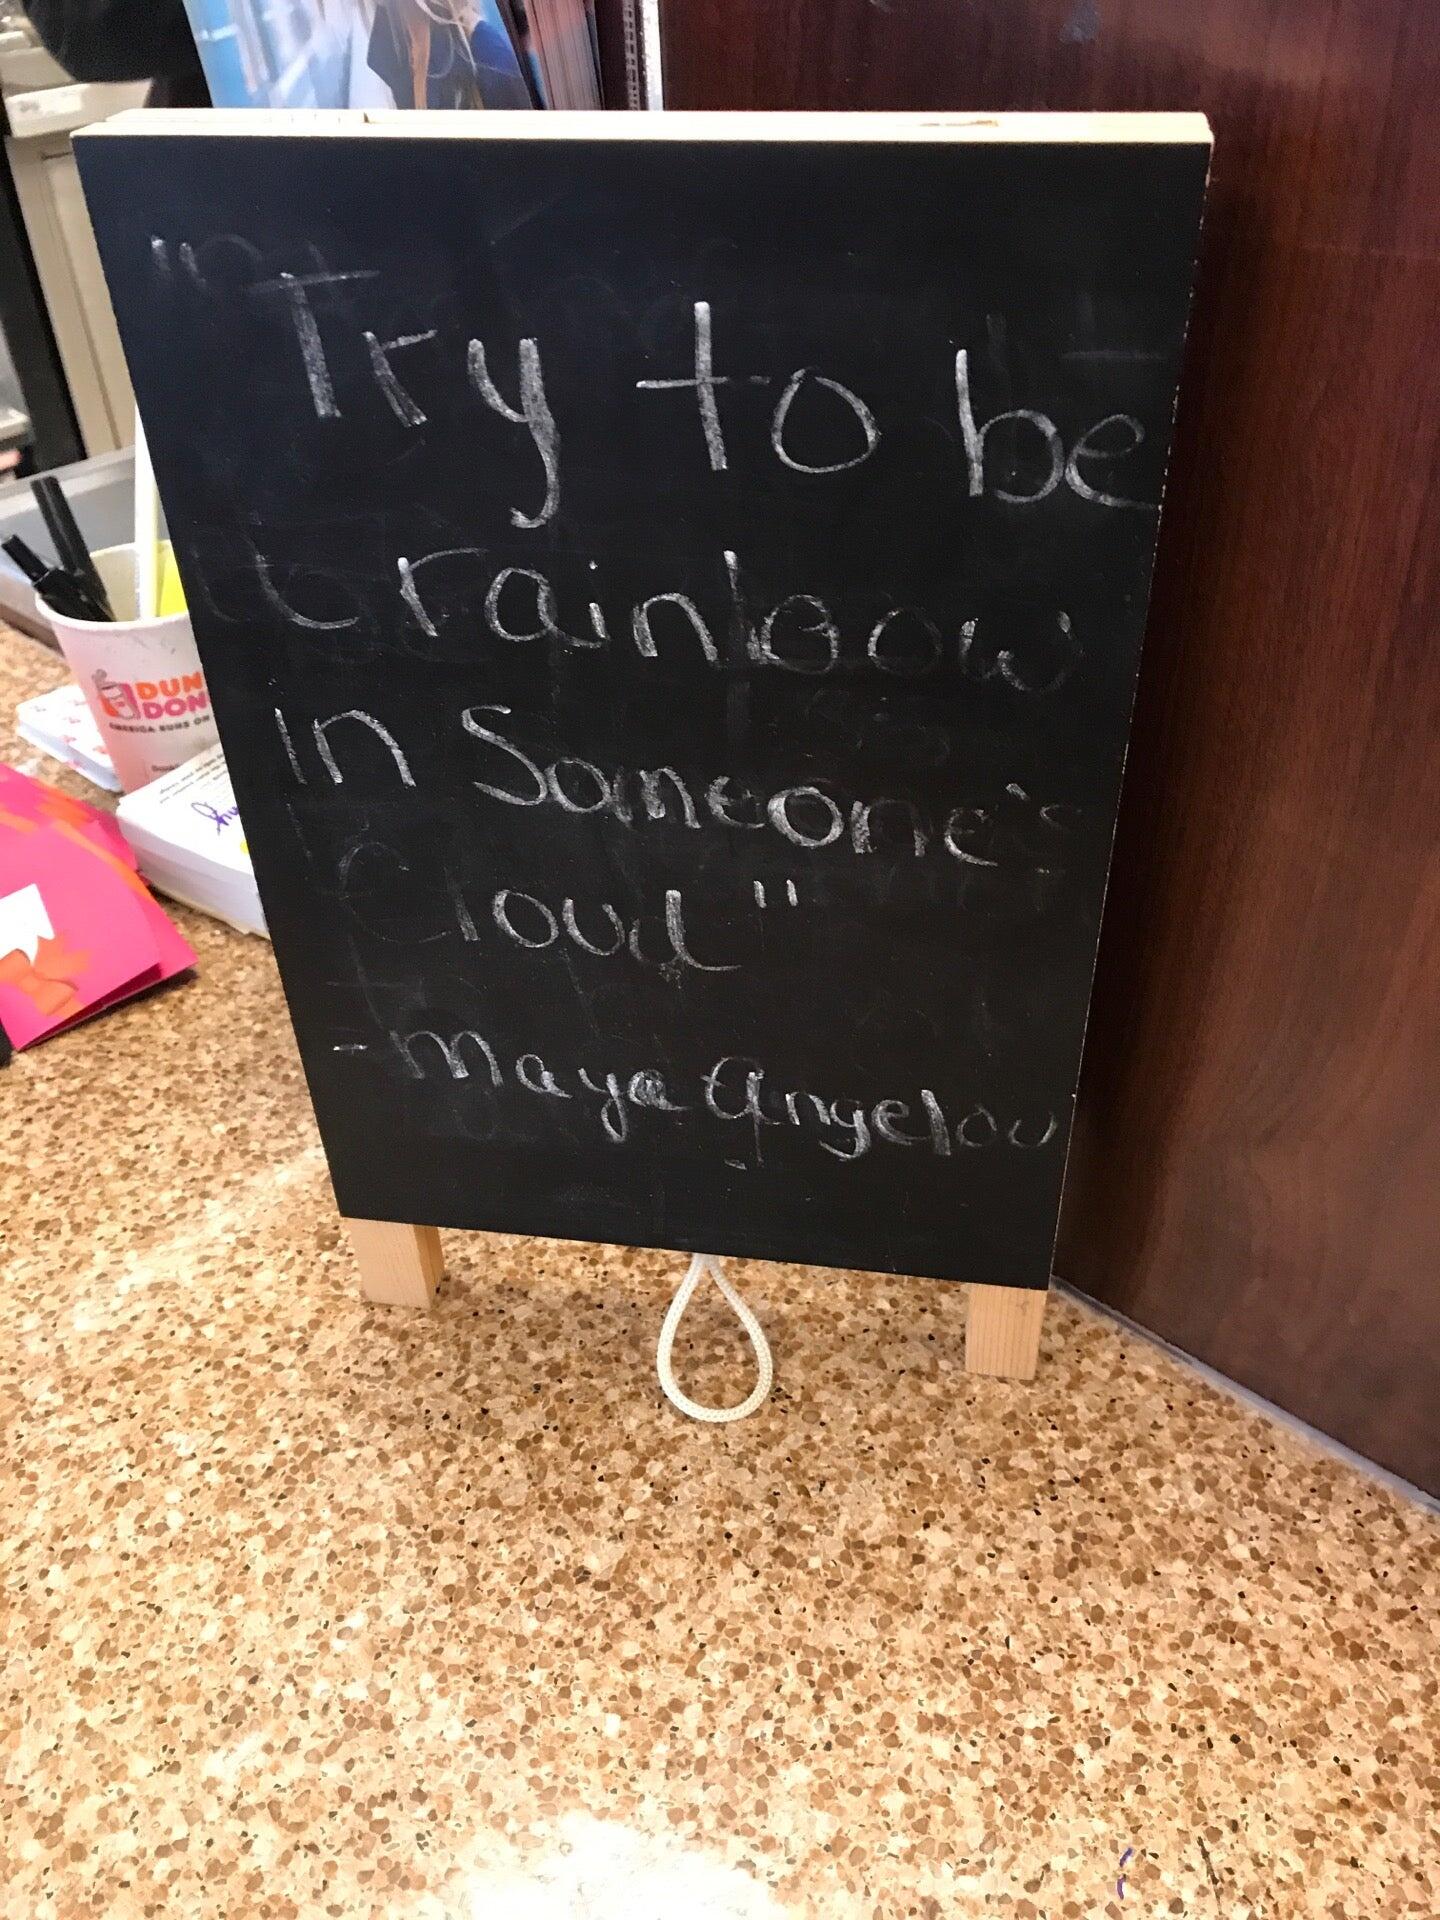 "Try to be
rainbow
in Someone's
Cloud"
- Maya Angelou
DUN
DON
AMERICA RUNS ON